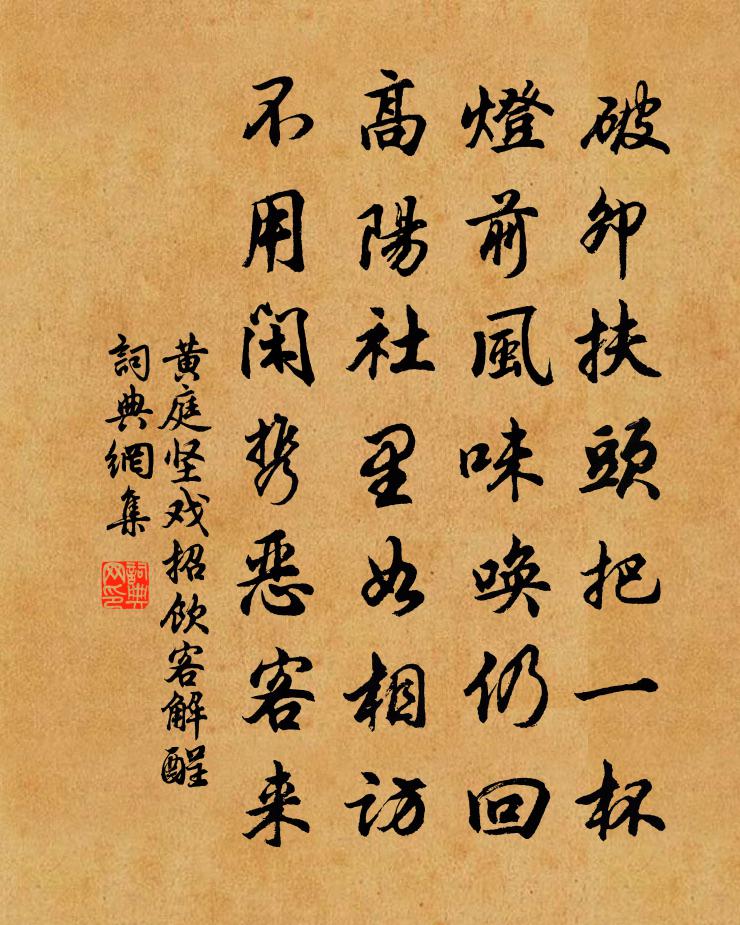 破卯扶頭把一杯
燈前風味喚仍回
高陽社里如相訪
不用閑携恶客来
黄庭坚戏招飲客解酲
詞典網集
詞典网印